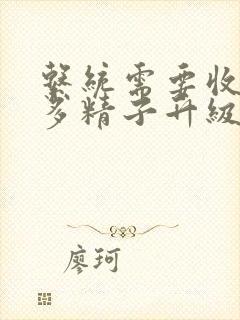 繫統需要收
多精子升級
廖珂